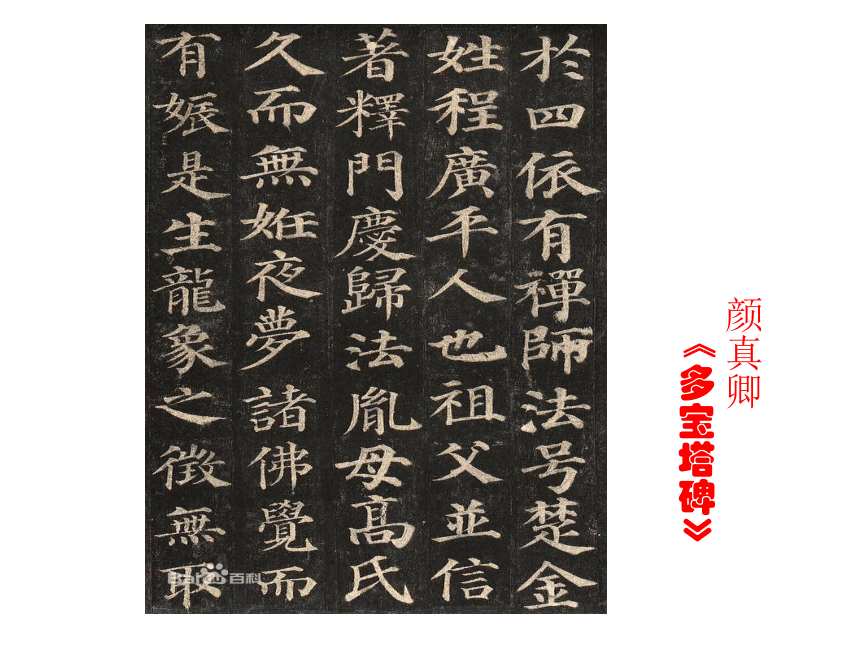 於四依有禪師法号楚金
姓程廣平人也祖父並信
著釋門慶歸法胤母高氏
久而無姙夜夢諸佛覺而
有娠是生龍象之徵無取
颜真卿
《多宝塔碑》
Bai du 百科